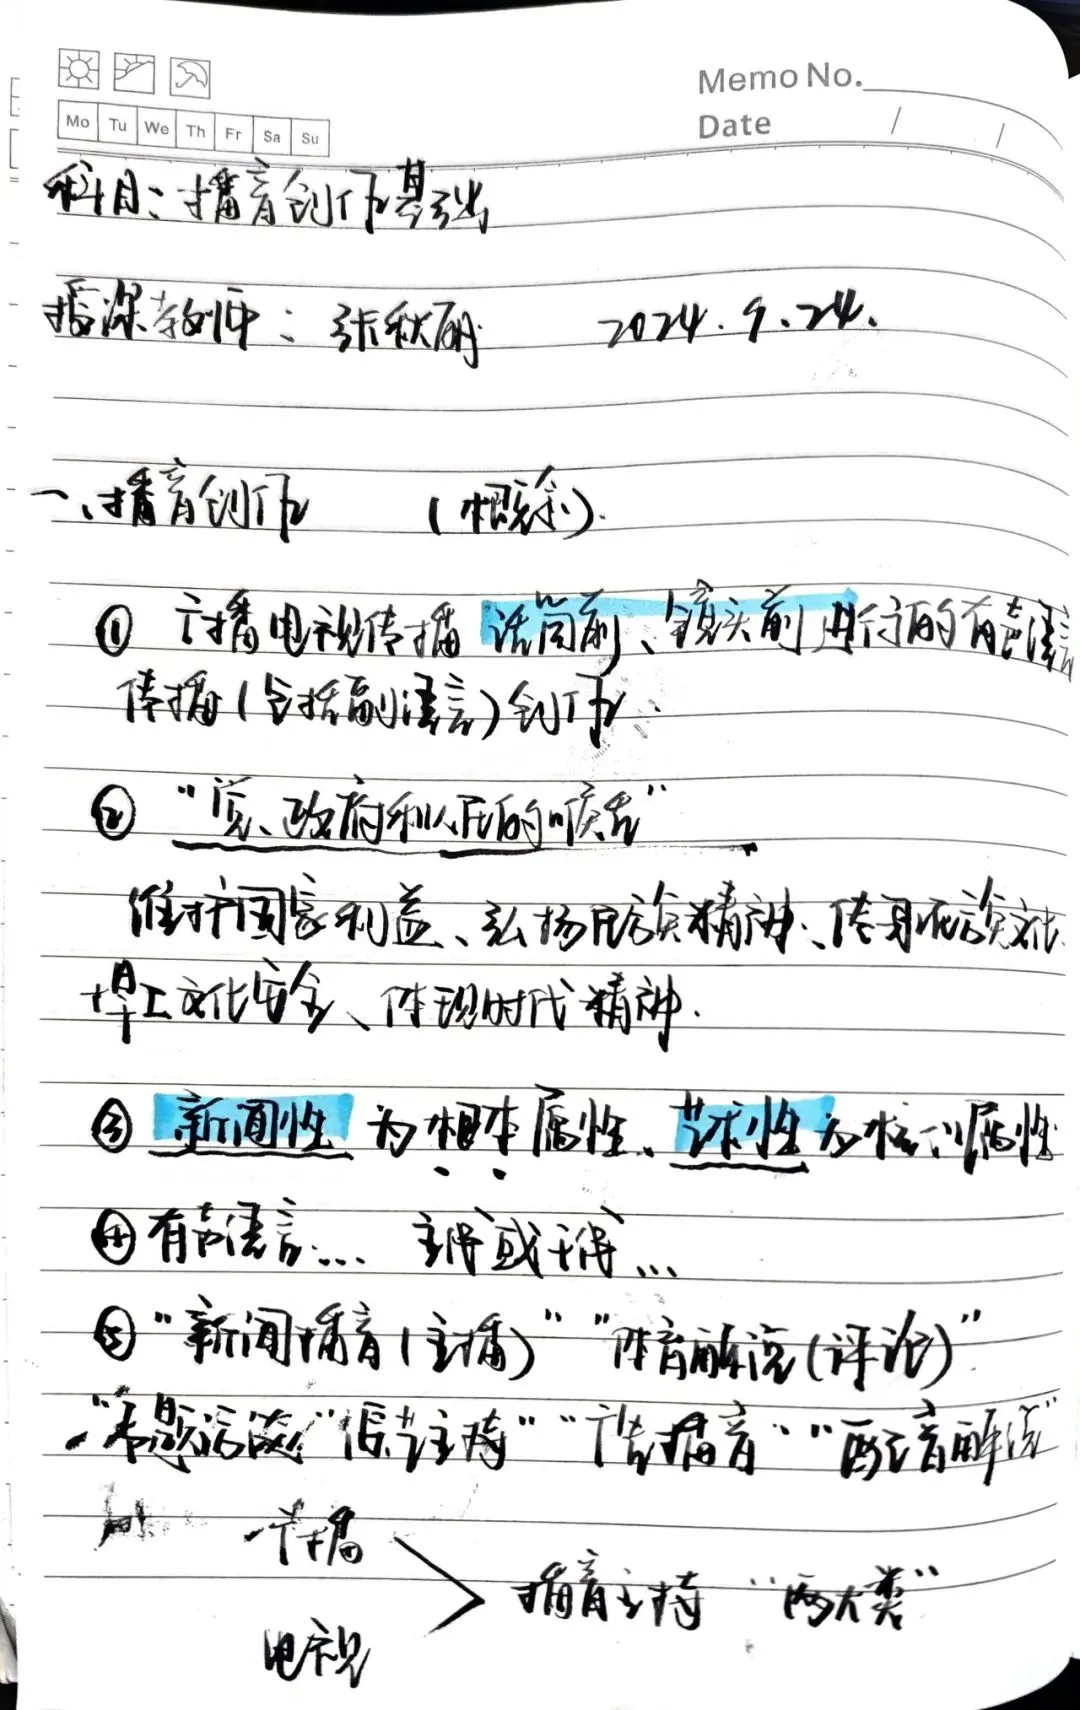 Memo No.
Date / /
Mo Tu We Th Fr Sa Su
科目：播音创作基础
授课教师：张秋丽 2024.9.24.
一、播音创作 （概念）.
① 广播电视传播话筒前、镜头前进行的有声语言
传播（包括副语言）创作.
② “党、政府和人民的喉舌”
维护国家利益、弘扬民族精神、传承民族文化
捍卫文化安全、体现时代精神.
③ 新闻性为根本属性、艺术性为核心属性
④ 有声语言... 主体或干体...
⑤ “新闻播音（主播）” “体育解说（评论）”
“专题访谈” “综艺主持” “广告播音” “配音解说”
广播
播音主持 “两大类”
电视